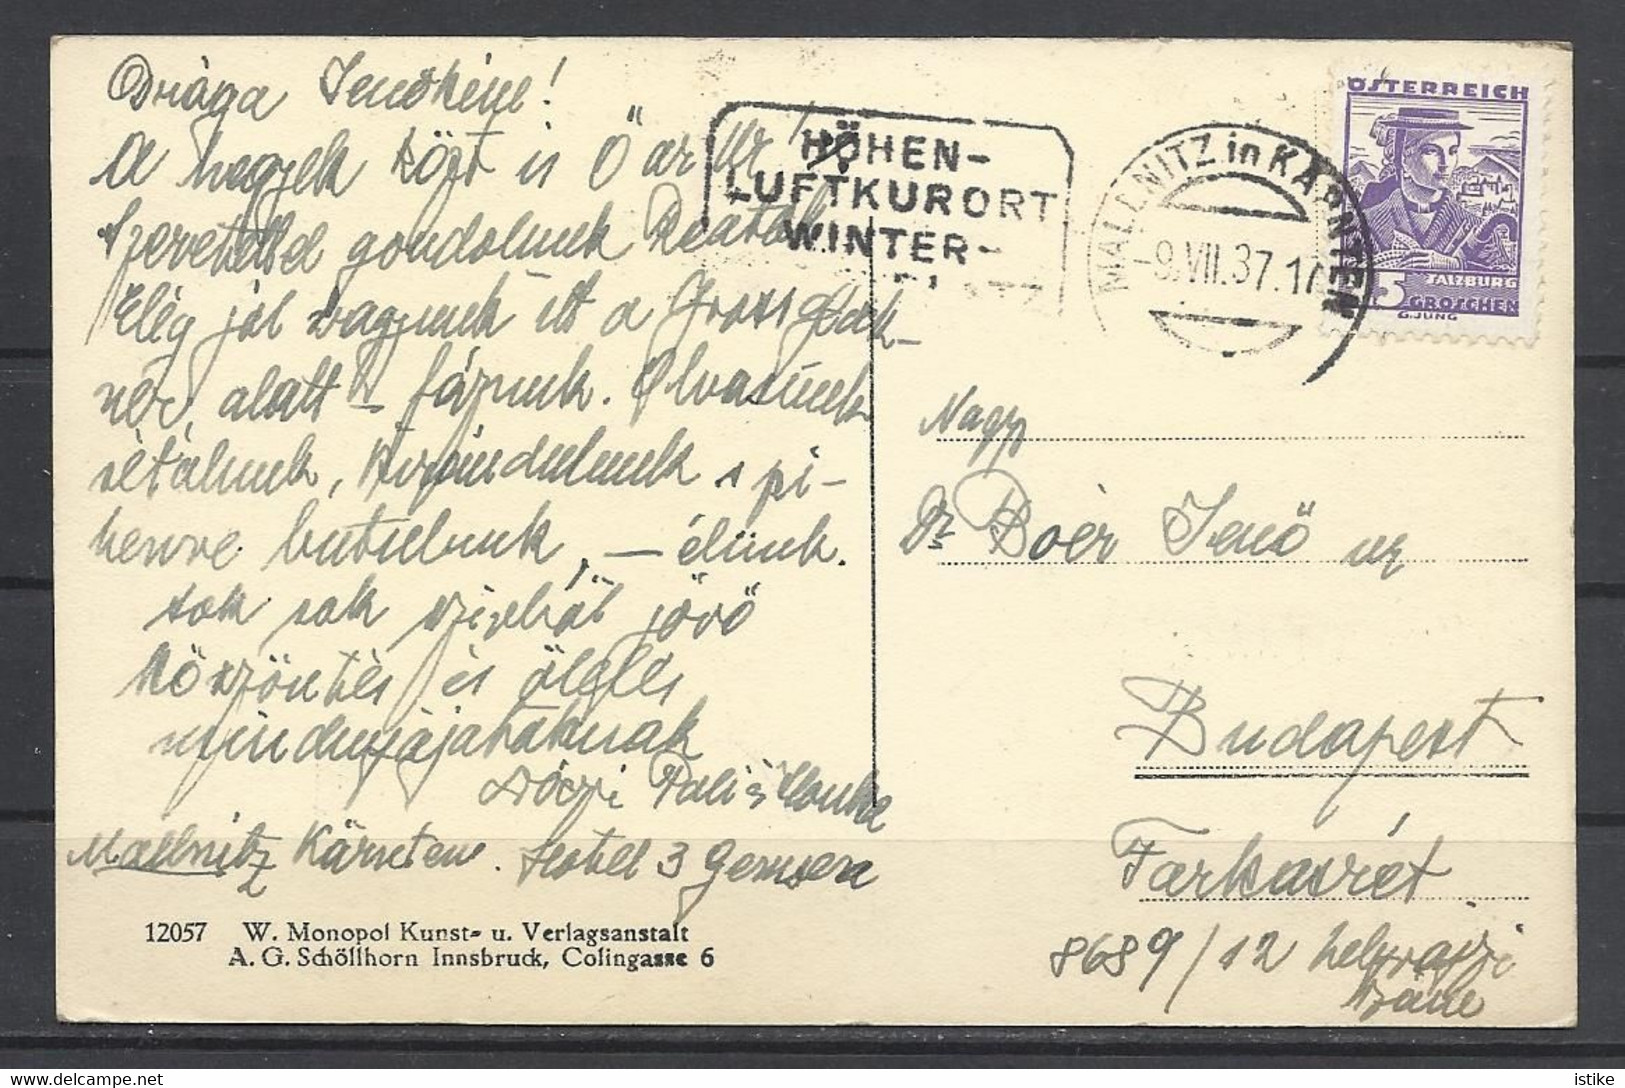 Drága Jenőkéne!
A hegyek közt is Ő az Úr!
Szeretettel gondolunk Reátok
Elég jól vagyunk itt a Gross Glock-
ner alatt – fázunk. Olvasunk
sétálunk, kirándulunk s pi-
henve butulunk, – élünk.
Sok sok szívből jövő
köszöntés és ölelés
mindnyájatoknak
Dóczi Pali s Ilonka
Mallnitz Kärnten. Hotel 3 Gemsen
12057 W. Monopol Kunst- u. Verlagsanstalt
A. G. Schöllhorn Innsbruck, Colingasse 6
HÖHEN-
LUFTKURORT
WINTER-
MALLNITZ in KÄRNTEN
-9.VII.37.17
ÖSTERREICH
SALZBURG
5 GROSCHEN
G.JUNG
Nagys
Dr Boér Jenő úr
Budapest
Farkasrét
8689/12 helyrajzi
szám
istike